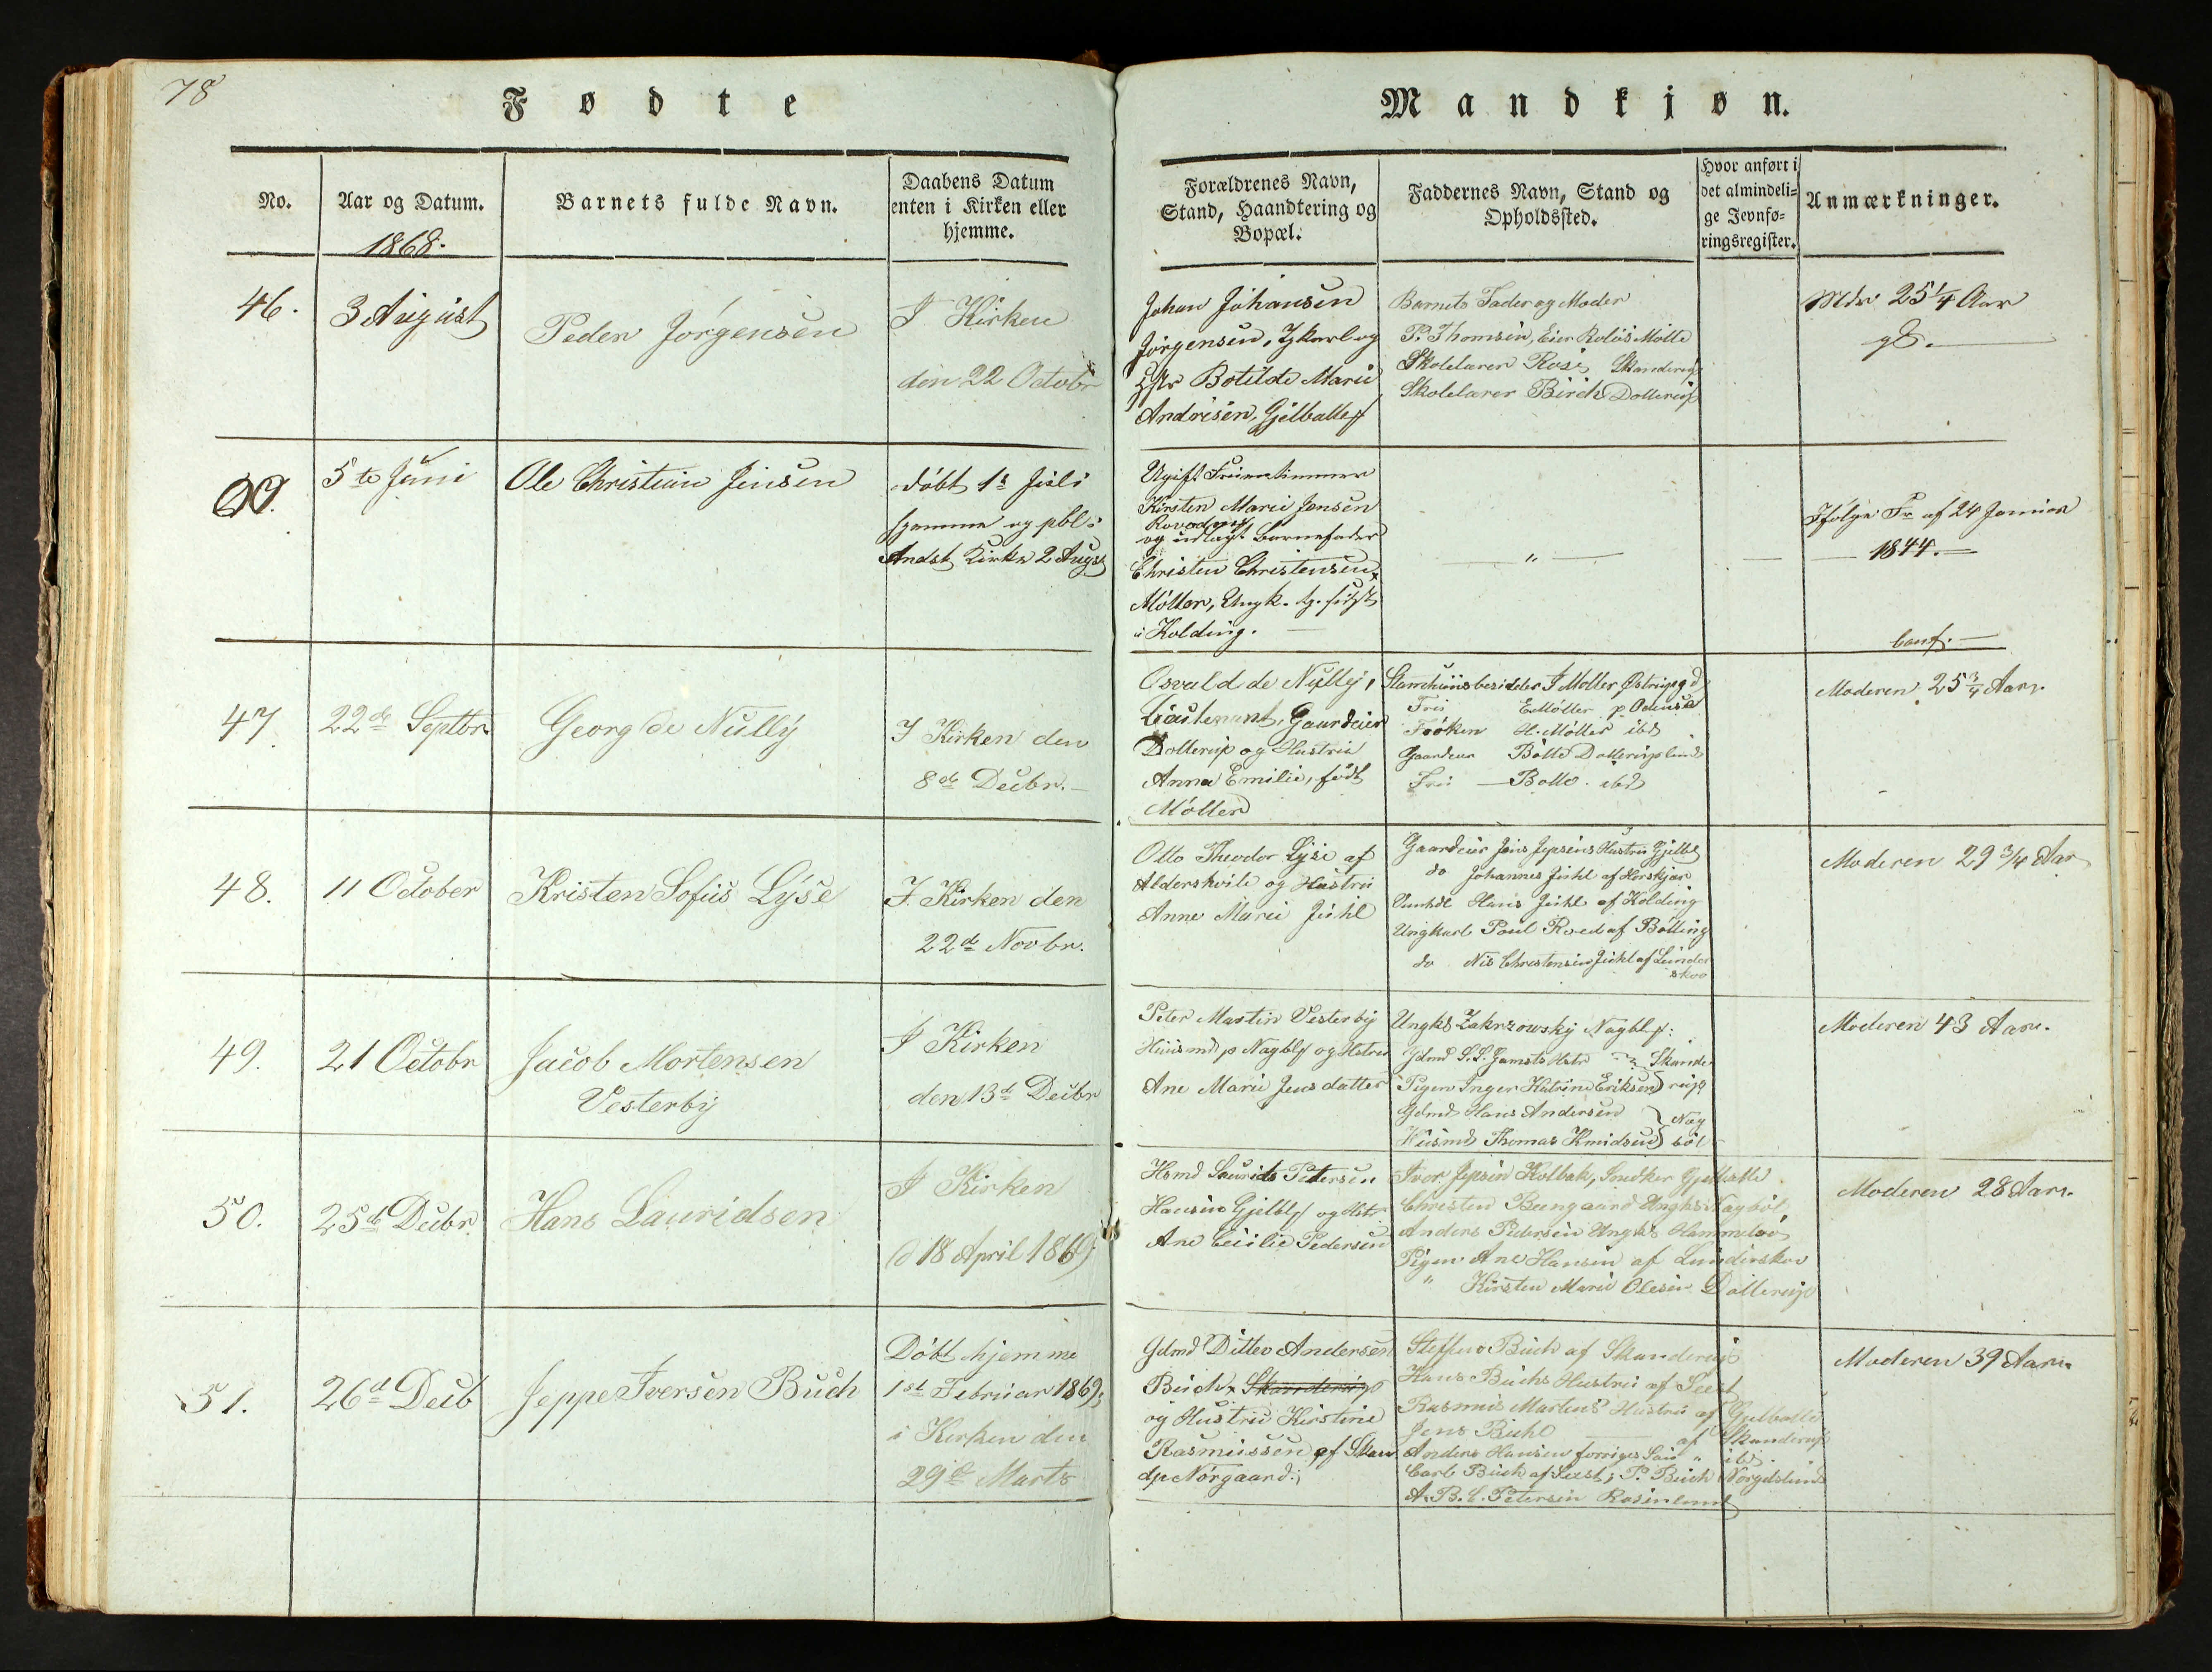 78
Fødte
Mandkjøn.
No.
Aar og Datum.
1868.
Barnets fulde Navn.
Daabens Datum
enten i Kirken eller
hjemme.
Forældrenes Navn,
Stand, Haandtering og
Bopæl.
Faddernes Navn, Stand og
Opholdssted.
Hvor anført i
det almindeli=
ge Jevnfø=
ringsregister.
Anmærkninger.
46.
3 August
Peder Jørgensen
I Kirken
den 22 Octobr
Johan Johansen
Jørgensen, Ugkarl og
Hstr Botilde Marie
Andresen, Gjelballe
Barnets Fader og Moder
P. Thomsen, Eier Roløs Mølle
Skolelærer Rosi Skanderup
Skolelærer Birch Dollerup
Mdr 25 1/4 Aar
5te Juni
Ole Christian Jensen
døbt 1s Juli
hjemme og pbl i
Andst Kirke 2 Augs
Ugift Fruentimmer
Kirsten Marie Jensen
og udlagt Barnefader
Christen Christensen
Møller, Ungk.
i Kolding.
"
Ifølge Fr af 24 Januar
1844.
47
22de Septbr
Georg de Nully
I Kirken den
8de Decbr.
Osvald de Nully,
Lieutenant, Gaardeier
Dollerup og Hustru
Anna Emilie, født
Møller
Stamhuusbesidder J Møller Østrupgd
Fru E Møller p Odense
Frøken H. Møller ibd
Gaardeier Bølle Dolleruplund
Fru — Bølle. ibd
Moderen 25 3/4 Aar.
48.
11 October
Kristen Sofus Lyse
I Kirken den
22de Novbr.
Otto Theodor Lyse af
Alderskvile og Hustru
Anne Marie Juhl
Gaardeier Jens Jepsens Hustru Gjelbl
do Johannes Juhl af Herskjær
Hans Juhl af Kolding
Ungkarl Poul Roed af Bølling
do Nis Christensen Juhl af Lunder
skov
Moderen 29 3/4 Aar
49.
21 Octobr
Jacob Mortensen
Vesterby
I Kirken
den 13d Decbr
Peter Martin Vesterby
Huusmd p Nagbl og Hstru
Ane Marie Jensdatter
Ungks Zakrzowsky Nagbl:
Gdmd S. S. Jamsts Hstr Skande
Pigen Inger Katrine Eriksen rup
Gdmd Hans Andersen Nag
Huusmd Thomas Knudsen bøl
Moderen 43 Aar.
50.
25de Decbr
Hans Lauridsen
I Kirken
d 18 April 1869
Hsmd Laurids Petersen
Hansen Gjelbl og Hstr
Ane Cecilie Pedersen
Iver Jepsen Holbak, Snedker Gjelballe
Christen Buengaard Ungks Nagbøl
Anders Pedersen Ungks
Pigen Ane Hansen af Lunderskov
" Kirsten Marie Olesen Dollerup
Moderen 28 Aar.
51.
26d Decb
Jeppe Iversen Buch
Døbt hjemme
1st Februar 1869;
i Kirken den
29de Marts
Gdmd Ditlev Andersen
Buch, Skanderup
og Hustru Kirstine
Rasmussen af Skan
dp Nørgaard;
Steffen Buch af Skanderup
Hans Buchs Hustru af Seest
Rasmus Martens Hustru af Gjelballe
Jens Buhl — af Skanderup
Anders Hansen ibd.
Carl Buch af Seest; P. Buch
A. B. C. Petersen Rosenlund
Moderen 39 Aar.